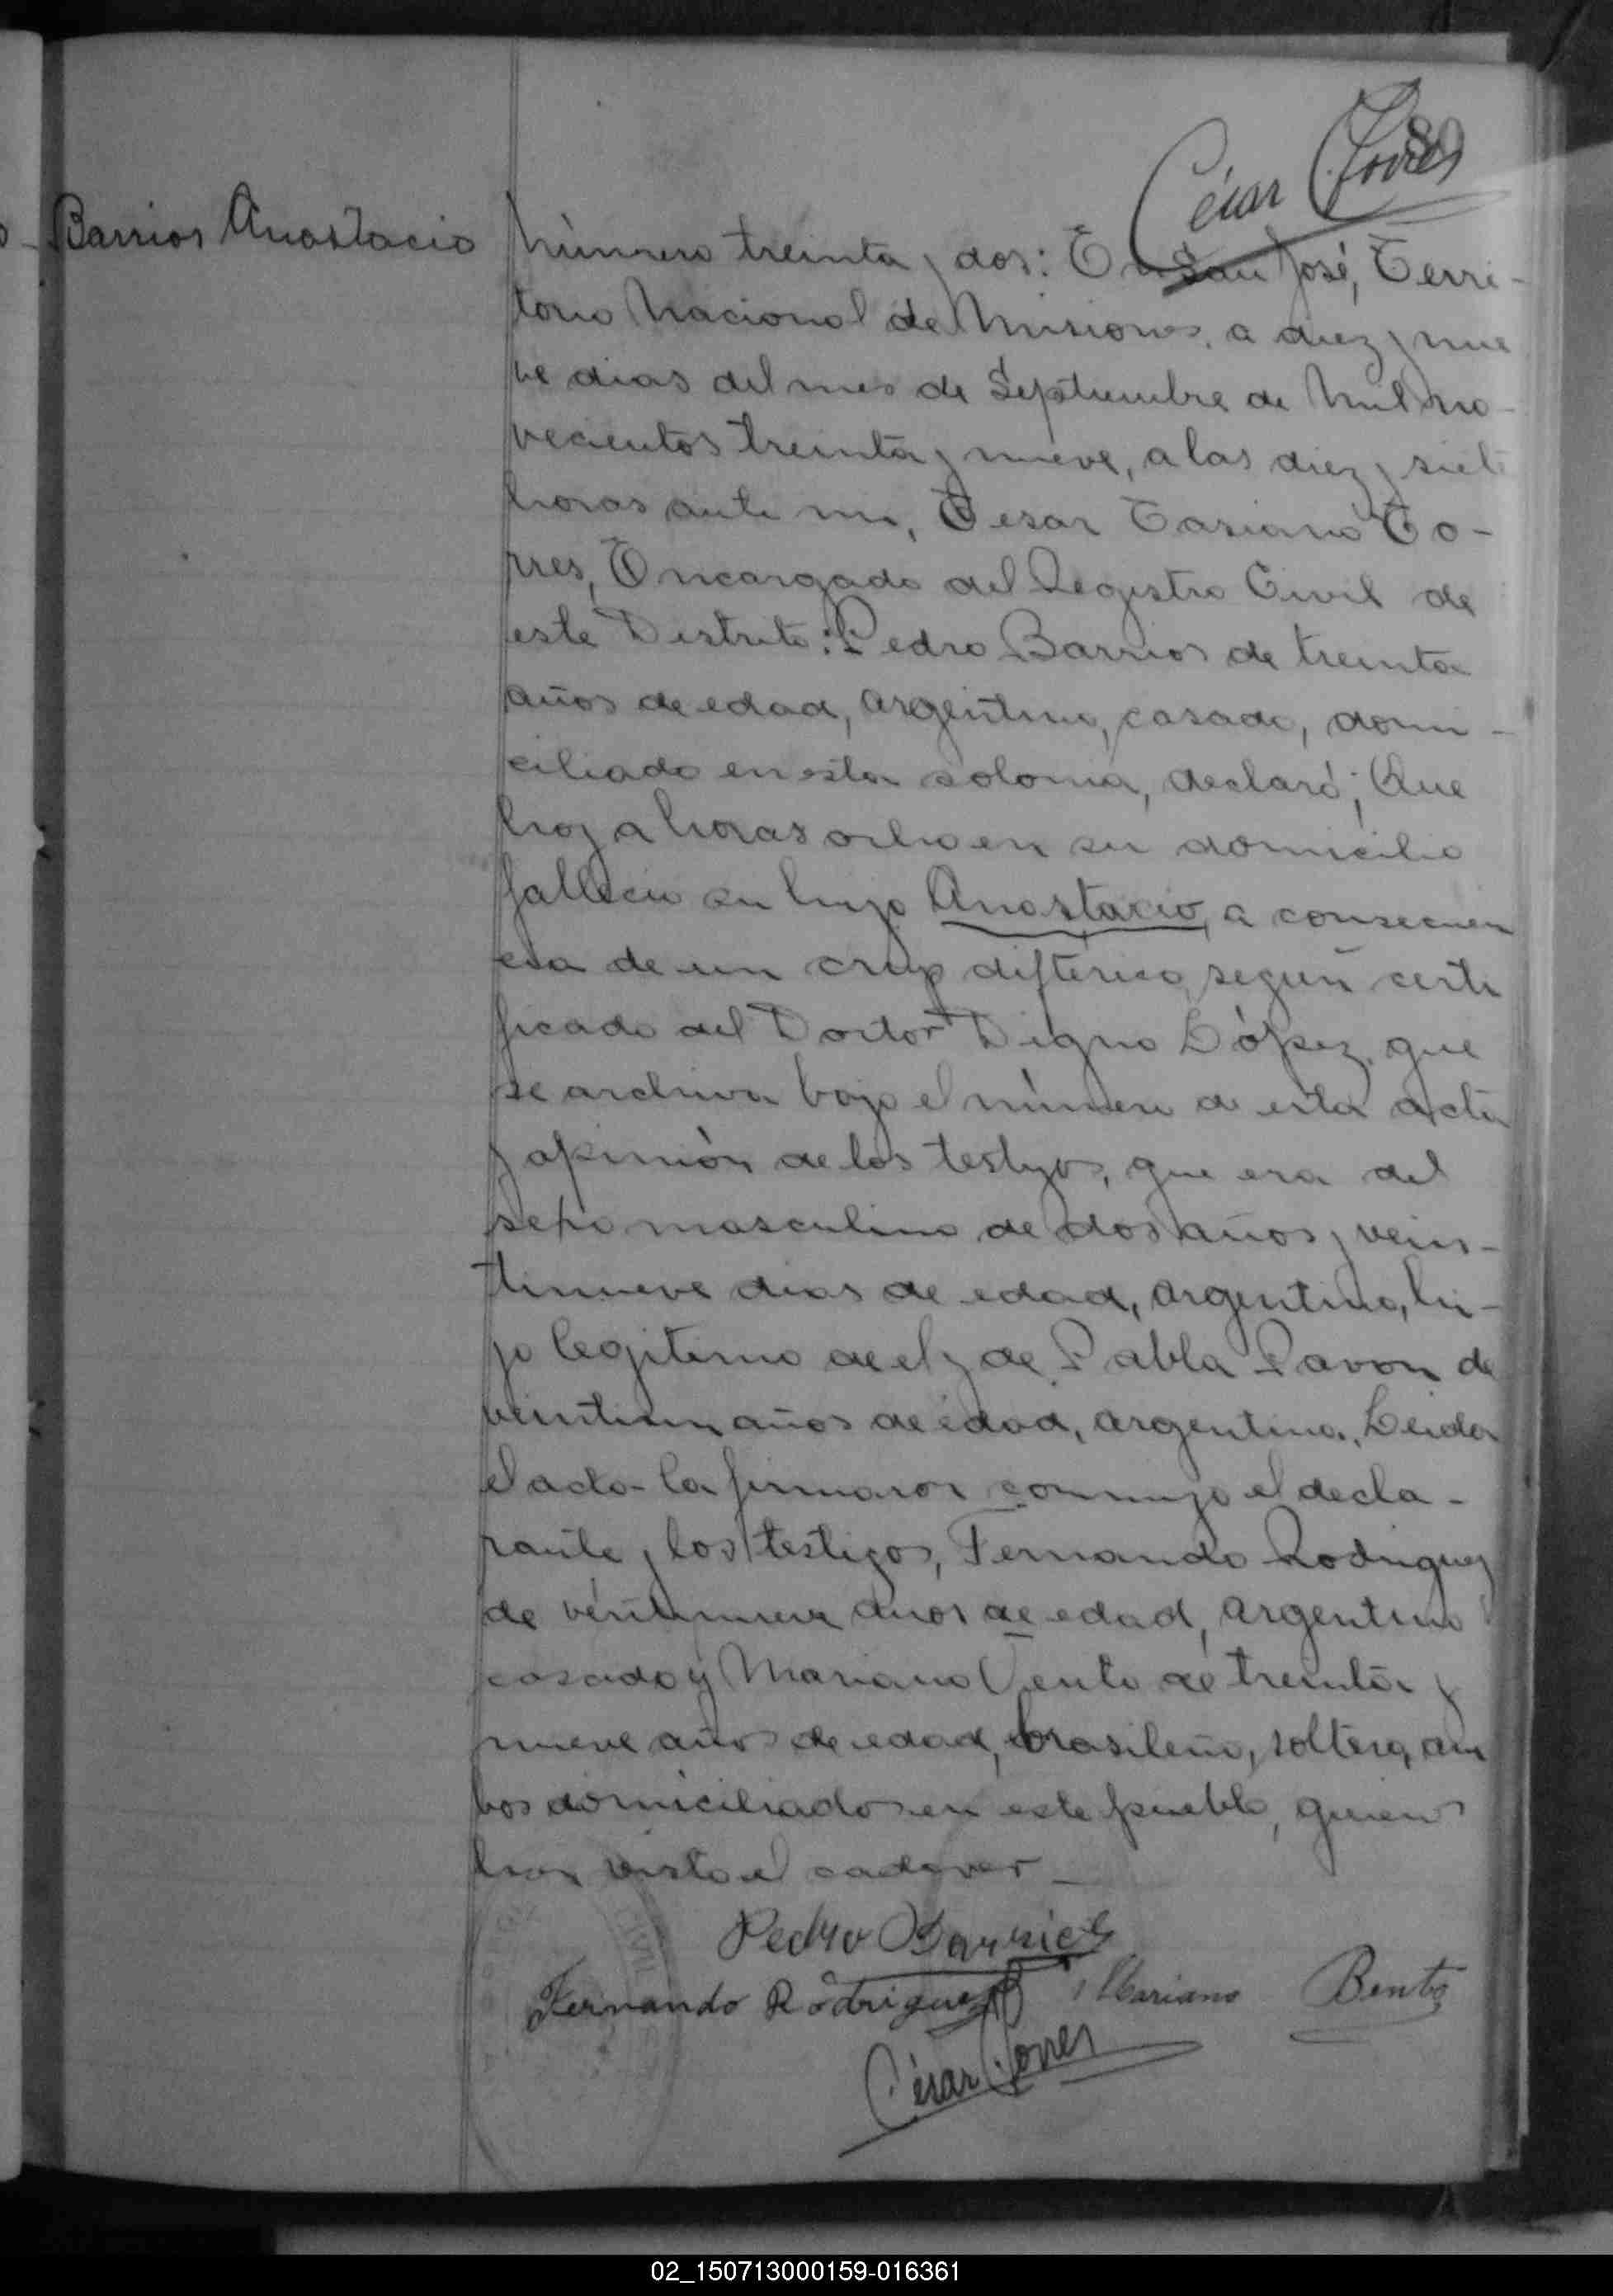 César Torres
Barrios Anastacio
Número treinta y dos: En San José, Terri-
torio Nacional de Misiones, a diez y nue
ve dias del mes de Septiembre de mil no-
vecientos treinta y nueve, a las diez y siete
horas ante mi, Cesar Casiano To-
rres, Encargado del Registro Civil de
este Distrito: Pedro Barrios de treinta
años de edad, argentino, casado, domi-
ciliado en esta colonia, declaró; Que
hoy a horas ocho en su domicilio
fallecio su hijo Anastacio, a consecuen
cia de un crup diftérico, según certi
ficado del Doctor Digno López, que
se archiva bajo el número de esta acta
y opinión de los testigos, que era del
sexo masculino de dos años y vein-
tinueve dias de edad, argentino, hi-
jo legitimo de el y de Pabla Pavon de
veintiun años de edad, argentina. Leida
el acta la firmaron conmigo el decla-
rante y los testigos, Fernando Rodriguez
de veintinueve años de edad, argentino
casado y Mariano Vento de treinta y
nueve años de edad, brasileño, soltero, am
bos domiciliados en este pueblo, quienes
han visto el cadaver_
Pedro Barrios
Fernando Rodriguez Mariano Bento
César Torres
CIVIL
02_150713000159-016361